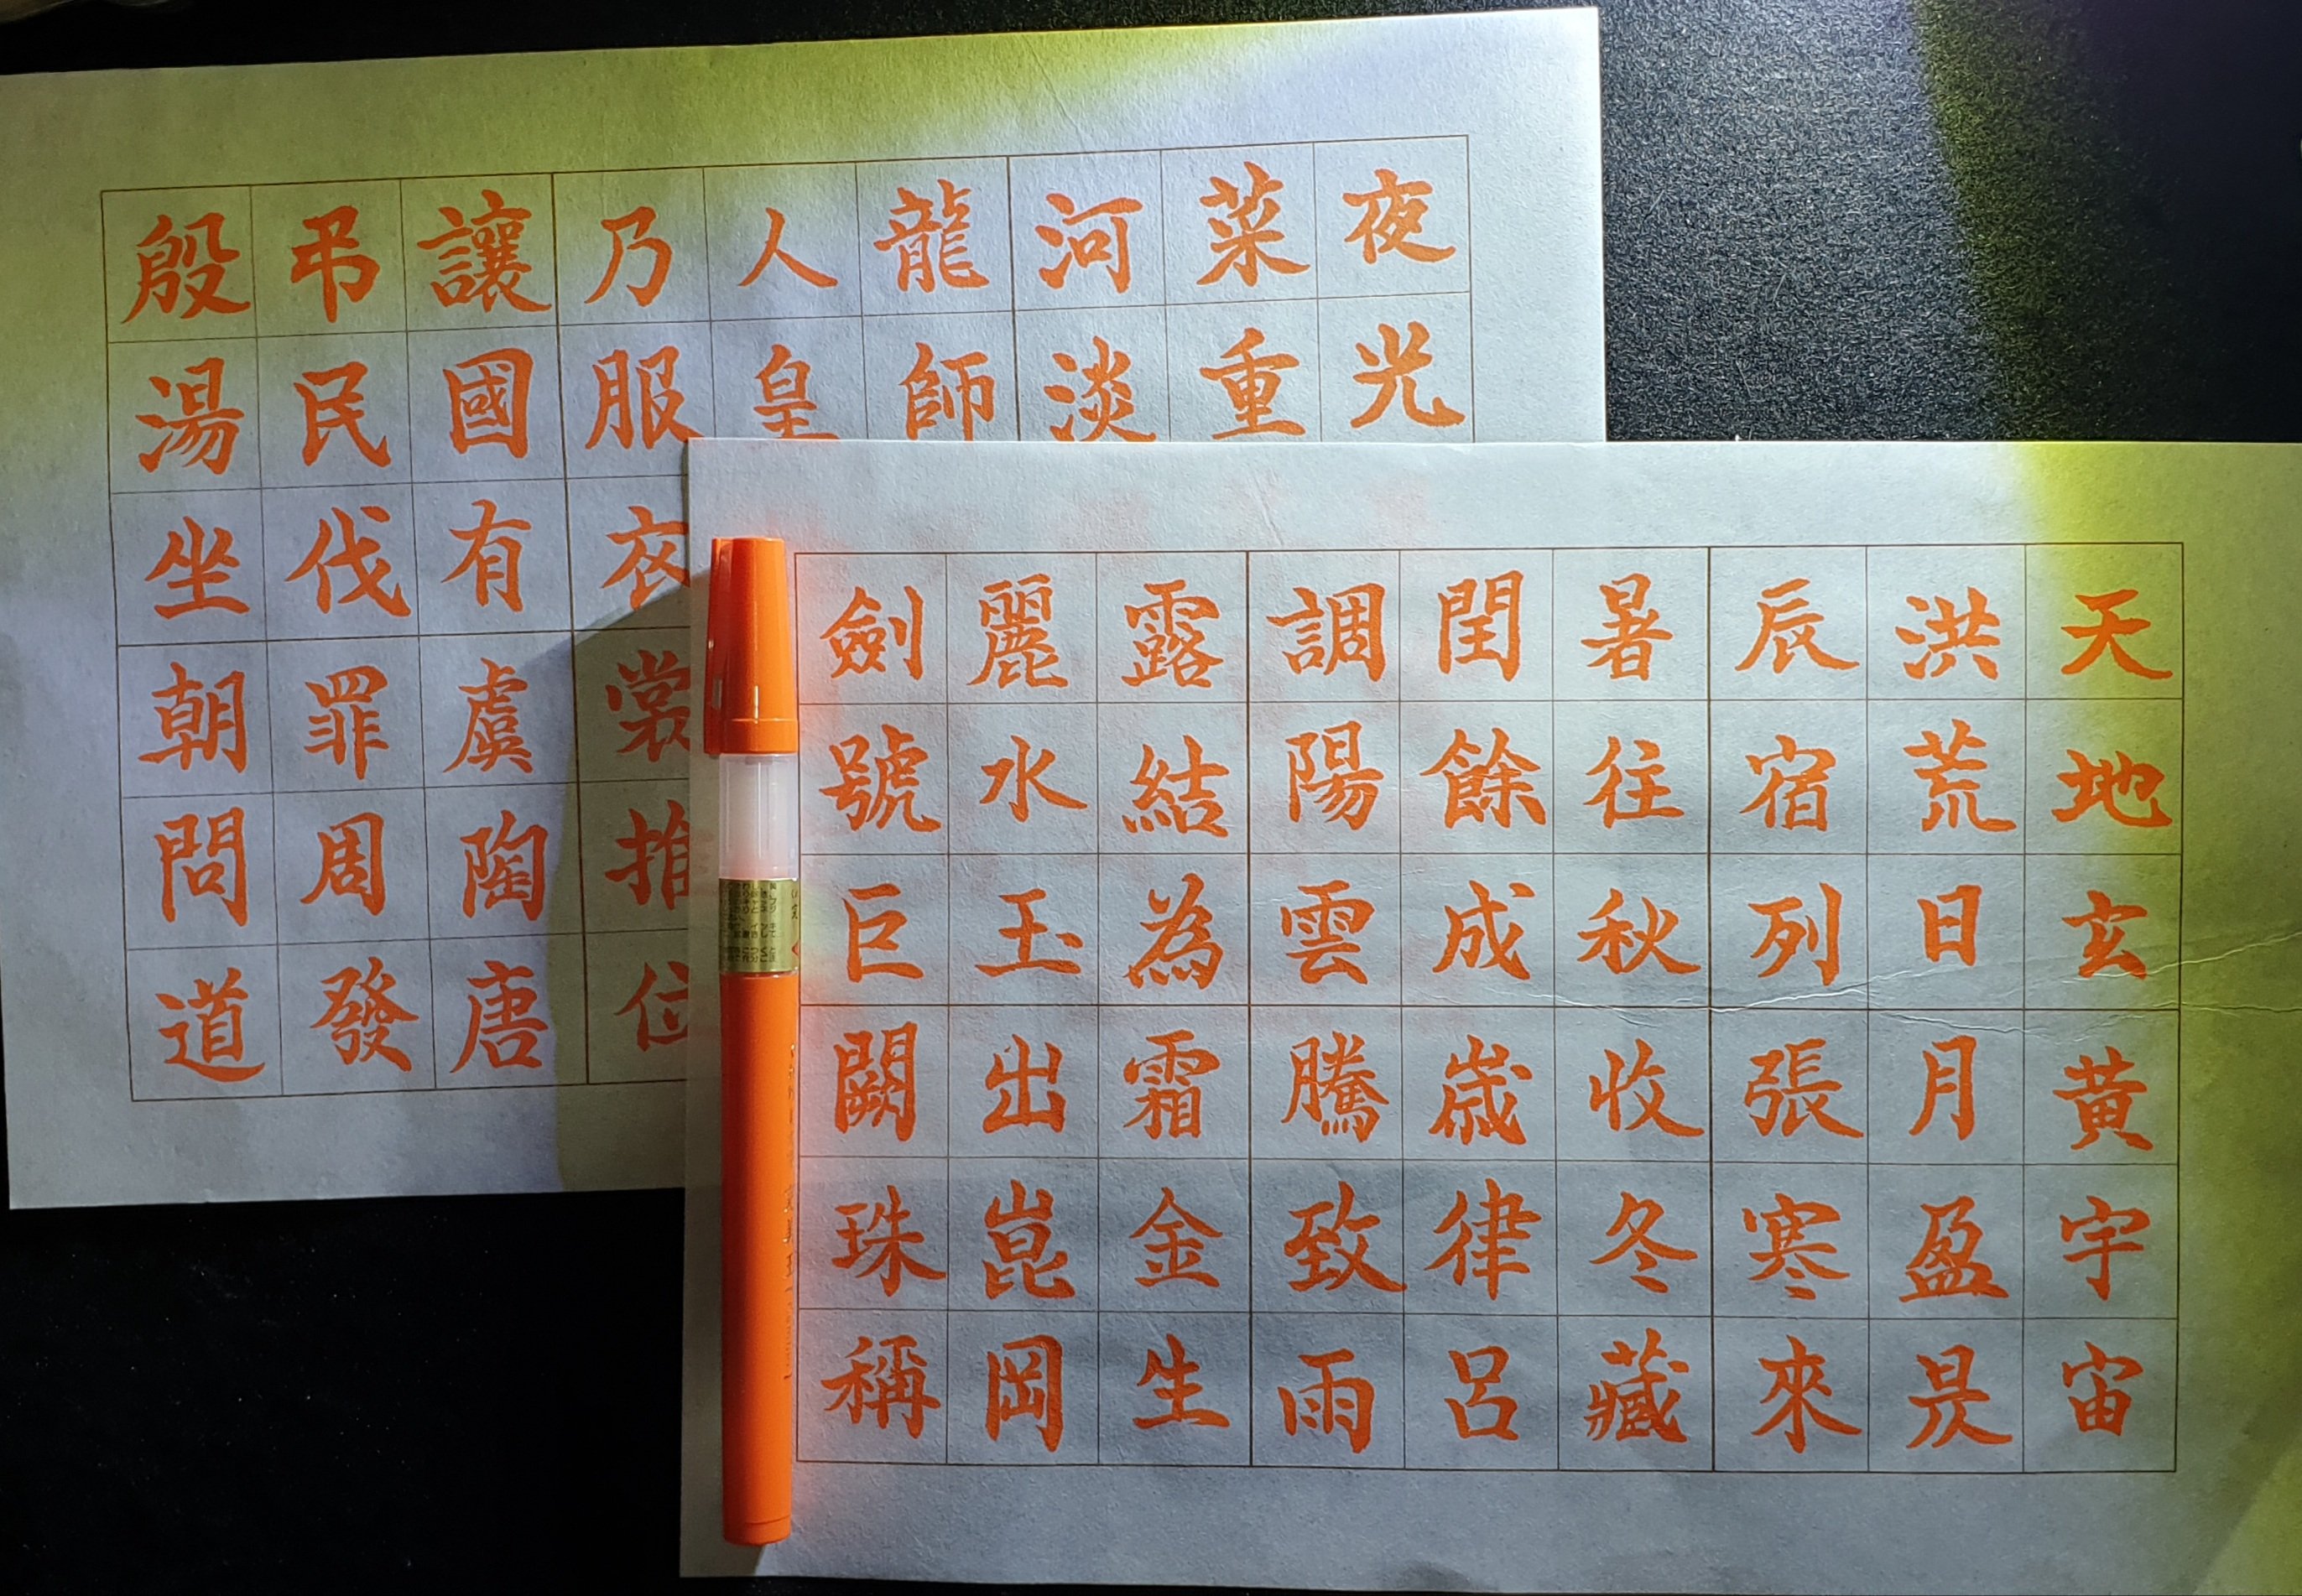 天地玄黄宇宙
洪荒日月盈昃
辰宿列張寒來
暑往秋收冬藏
閏餘成歲律呂
調陽雲騰致雨
露結為霜金生
麗水玉出崑岡
劍號巨闕珠稱
夜光
菜重
河淡
龍師
人皇
乃服衣裳推位
讓國有虞陶唐
弔民伐罪周發
殷湯坐朝問道